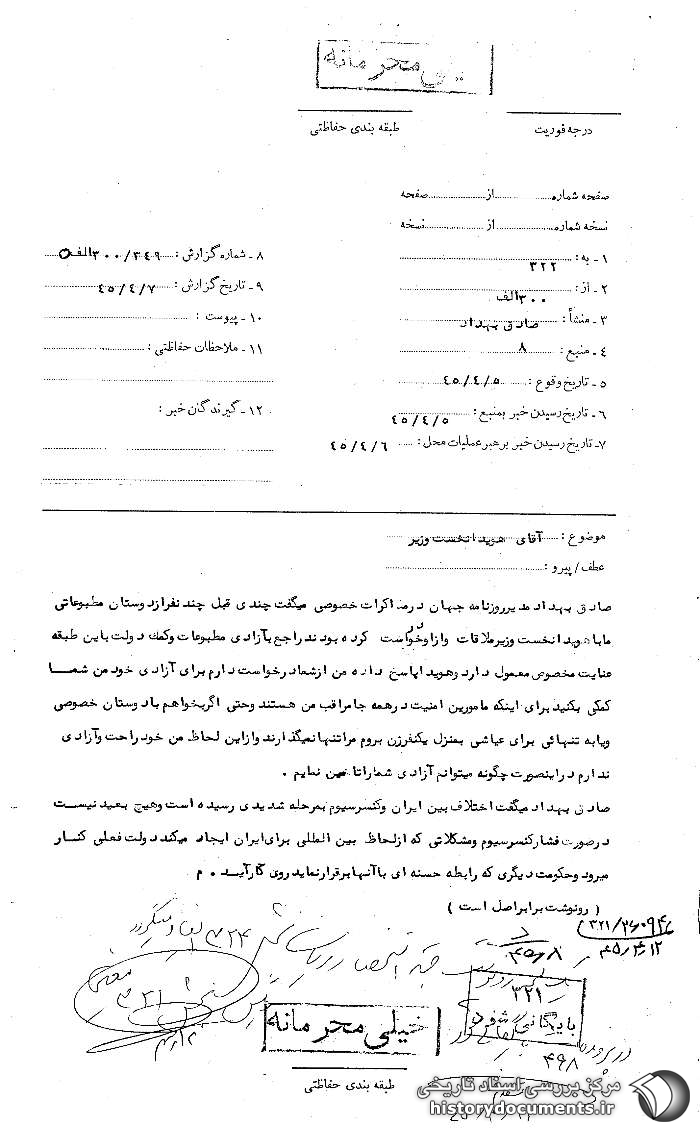 خیلی محرمانه
درجه فوریت
طبقه بندی حفاظتی
صفحه شماره از صفحه
نسخه شماره از نسخه
۱ - به : ۳۲۲
۲ - از : ۳۰۰الف
۳ - منشأ : صادق بهداد
۴ - منبع : ۸
۵ - تاریخ وقوع : ۴۵/۴/۵
۶ - تاریخ رسیدن خبر بمنبع : ۴۵/۴/۵
۷ - تاریخ رسیدن خبر برهبر عملیات محل : ۴۵/۴/۶
۸ - شماره گزارش : ۳۰۰/۳۴۹الف
۹ - تاریخ گزارش : ۴۵/۴/۷
۱۰ - پیوست :
۱۱ - ملاحظات حفاظتی :
۱۲ - گیرندگان خبر :
موضوع : آقای هویدا نخست وزیر
عطف / پیرو :
صادق بهداد مدیر روزنامه جهان در مذاکرات خصوصی میگفت چندی قبل چند نفر از دوستان مطبوعاتی
ما با هویدا نخست وزیر ملاقات و از او درخواست کرده بودند راجع بآزادی مطبوعات و کمک دولت باین طبقه
عنایت مخصوص معمول دارد و هویدا پاسخ داده من از شما درخواست دارم برای آزادی خود من شما
کمکی بکنید برای اینکه مامورین امنیت در همه جا مراقب من هستند و حتی اگر بخواهم با دوستان خصوصی
و یا به تنهائی برای عیاشی بمنزل یکنفر زن بروم مرا تنها نمیگذارند و از این لحاظ من خود راحت و آزادی
ندارم در اینصورت چگونه میتوانم آزادی شما را تامین نمایم .
صادق بهداد میگفت اختلاف بین ایران و کنسرسیوم بمرحله شدیدی رسیده است و هیچ بعید نیست
در صورت فشار کنسرسیوم و مشکلاتی که از لحاظ بین المللی برای ایران ایجاد میکند دولت فعلی کنار
میرود و حکومت دیگری که رابطه حسنه ای با آنها برقرار نماید روی کار آید . م
( رونوشت برابر اصل است )
۴۵/۴/۱۲
۳۲۱
بایگانی شود
در پرونده
خیلی محرمانه
طبقه بندی حفاظتی
مرکز بررسی اسناد تاریخی
historydocuments.ir